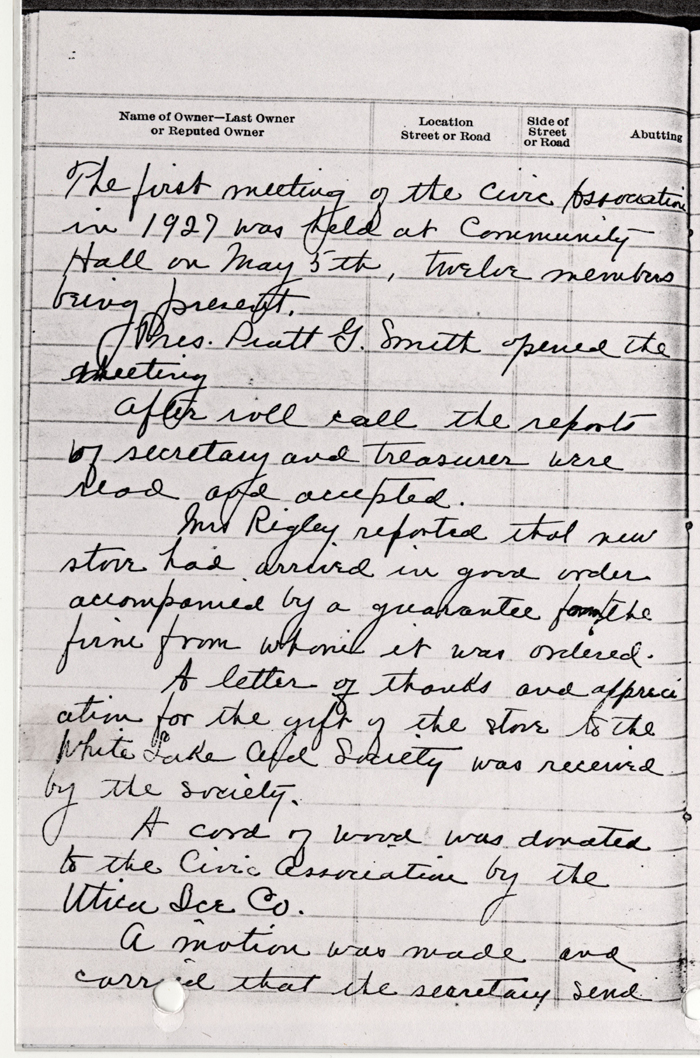 Name of Owner—Last Owner
or Reputed Owner
Location
Street or Road
Side of
Street
or Road
Abutting
The first meeting of the Civic Association
in 1927 was held at Community
Hall on May 5th, twelve members
being present.
Pres. Pratt G. Smith opened the
meeting
After roll call the reports
of secretary and treasurer were
read and accepted.
Mrs Rigley reported that new
stove had arrived in good order
accompanied by a guarantee from the
firm from whom it was ordered.
A letter of thanks and appreci
ation for the gift of the stove to the
White Lake Aid Society was received
by the society.
A cord of wood was donated
to the Civic Association by the
Utica Ice Co.
A motion was made and
carried that the secretary send